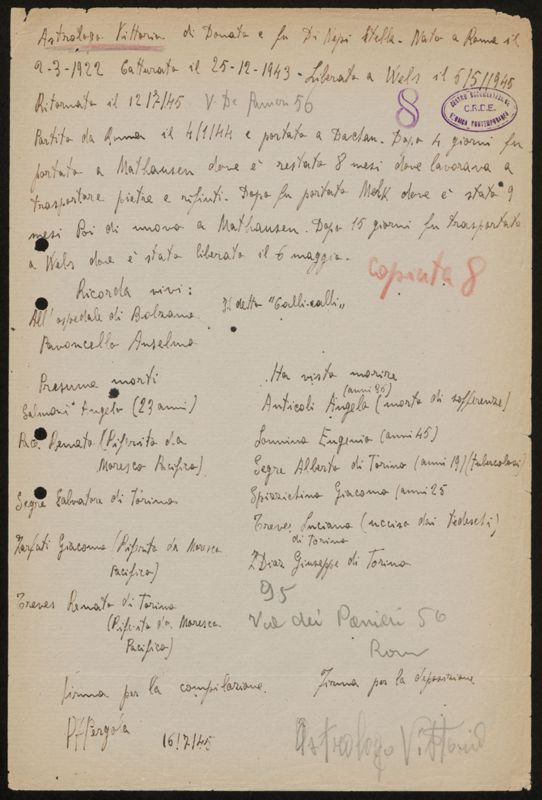 Astrologo Vittorio di Donato e fu Di Nepi Stella - Nato a Roma il
2-3-1922 Catturato il 25-12-1943 - Liberato a Wels il 5/5/1945
Ritornato il 12/7/45 V. De 56
8
C.R.D.E.
Partito da Roma il 4/1/44 e portato a Dachau. Dopo 4 giorni fu
portato a Mathausen dove è restato 8 mesi dove lavorava a
trasportare pietre e rifiuti. Dopo fu portato Melk dove è stato 9
mesi Poi di nuovo a Mathausen. Dopo 15 giorni fu trasportato
a Wels dove è stato liberato il 6 maggio.
Copiata 8
Ricorda vivi:
All'ospedale di Bolzano
Pavoncello Anselmo
detto "Calli-calli"
Presume morti
Salmoni Angelo (23 anni)
Renato (Riferito da
Moresco Pacifico)
Segre Salvatore di Torino
Zarfati Giacomo (Riferito da Moresco
Pacifico)
Treves Renato di Torino
(Riferito da Moresco
Pacifico)
Ha visto morire
Anticoli Angelo (morto di sofferenze)
Sonnino Eugenio (anni 45)
Segre Alberto di Torino (anni 19) (tubercolosi)
Spizzichino Giacomo (anni 25
Treves Luciano (ucciso dai tedeschi)
di Torino
Diaz Giuseppe di Torino
95
Via dei Panieri 56
Roma
firma per la compilazione
Firma per la deposizione
16/7/45
Astrologo Vittorio